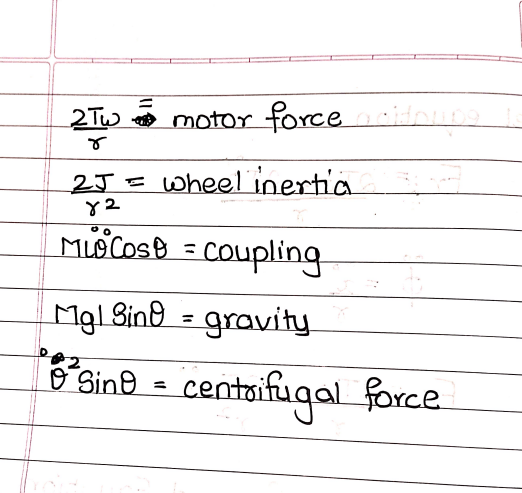 2Tw/r = motor force
2J/r2 = wheel inertia
Mlθ̈ Cosθ = coupling
Mgl Sinθ = gravity
θ̇² Sinθ = centrifugal force